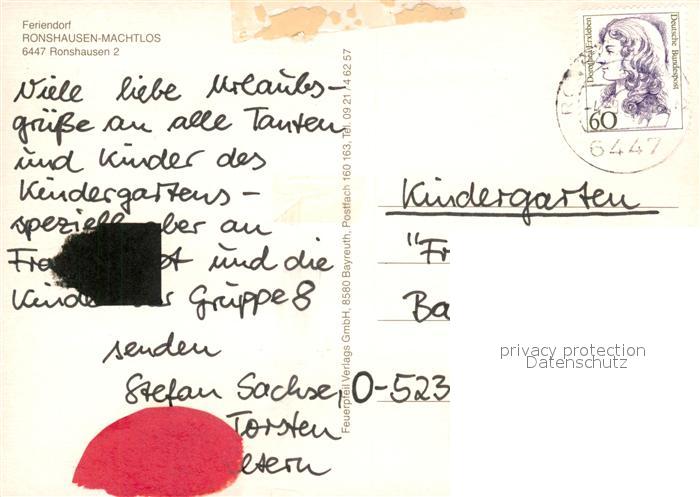 Feriendorf
RONSHAUSEN-MACHTLOS
6447 Ronshausen 2
Viele liebe Urlaubs-
grüße an alle Tanten
und Kinder des
Kindergartens -
speziell aber an
und die
Gruppe 8
senden
Stefan Sachse,
Torsten
Feuerpfeil Verlags GmbH, 8580 Bayreuth, Postfach 160 163, Tel. 09 21 / 4 62 57
Deutsche Bundespost
60
6447
Kindergarten
"Fr
Ba
O-523
privacy protection
Datenschutz